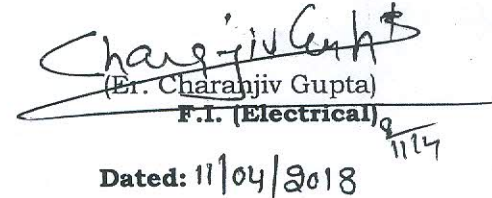 Charanjiv Gupta
(Er. Charanjiv Gupta)
F.I. (Electrical)
11/4
Dated: 11/04/2018